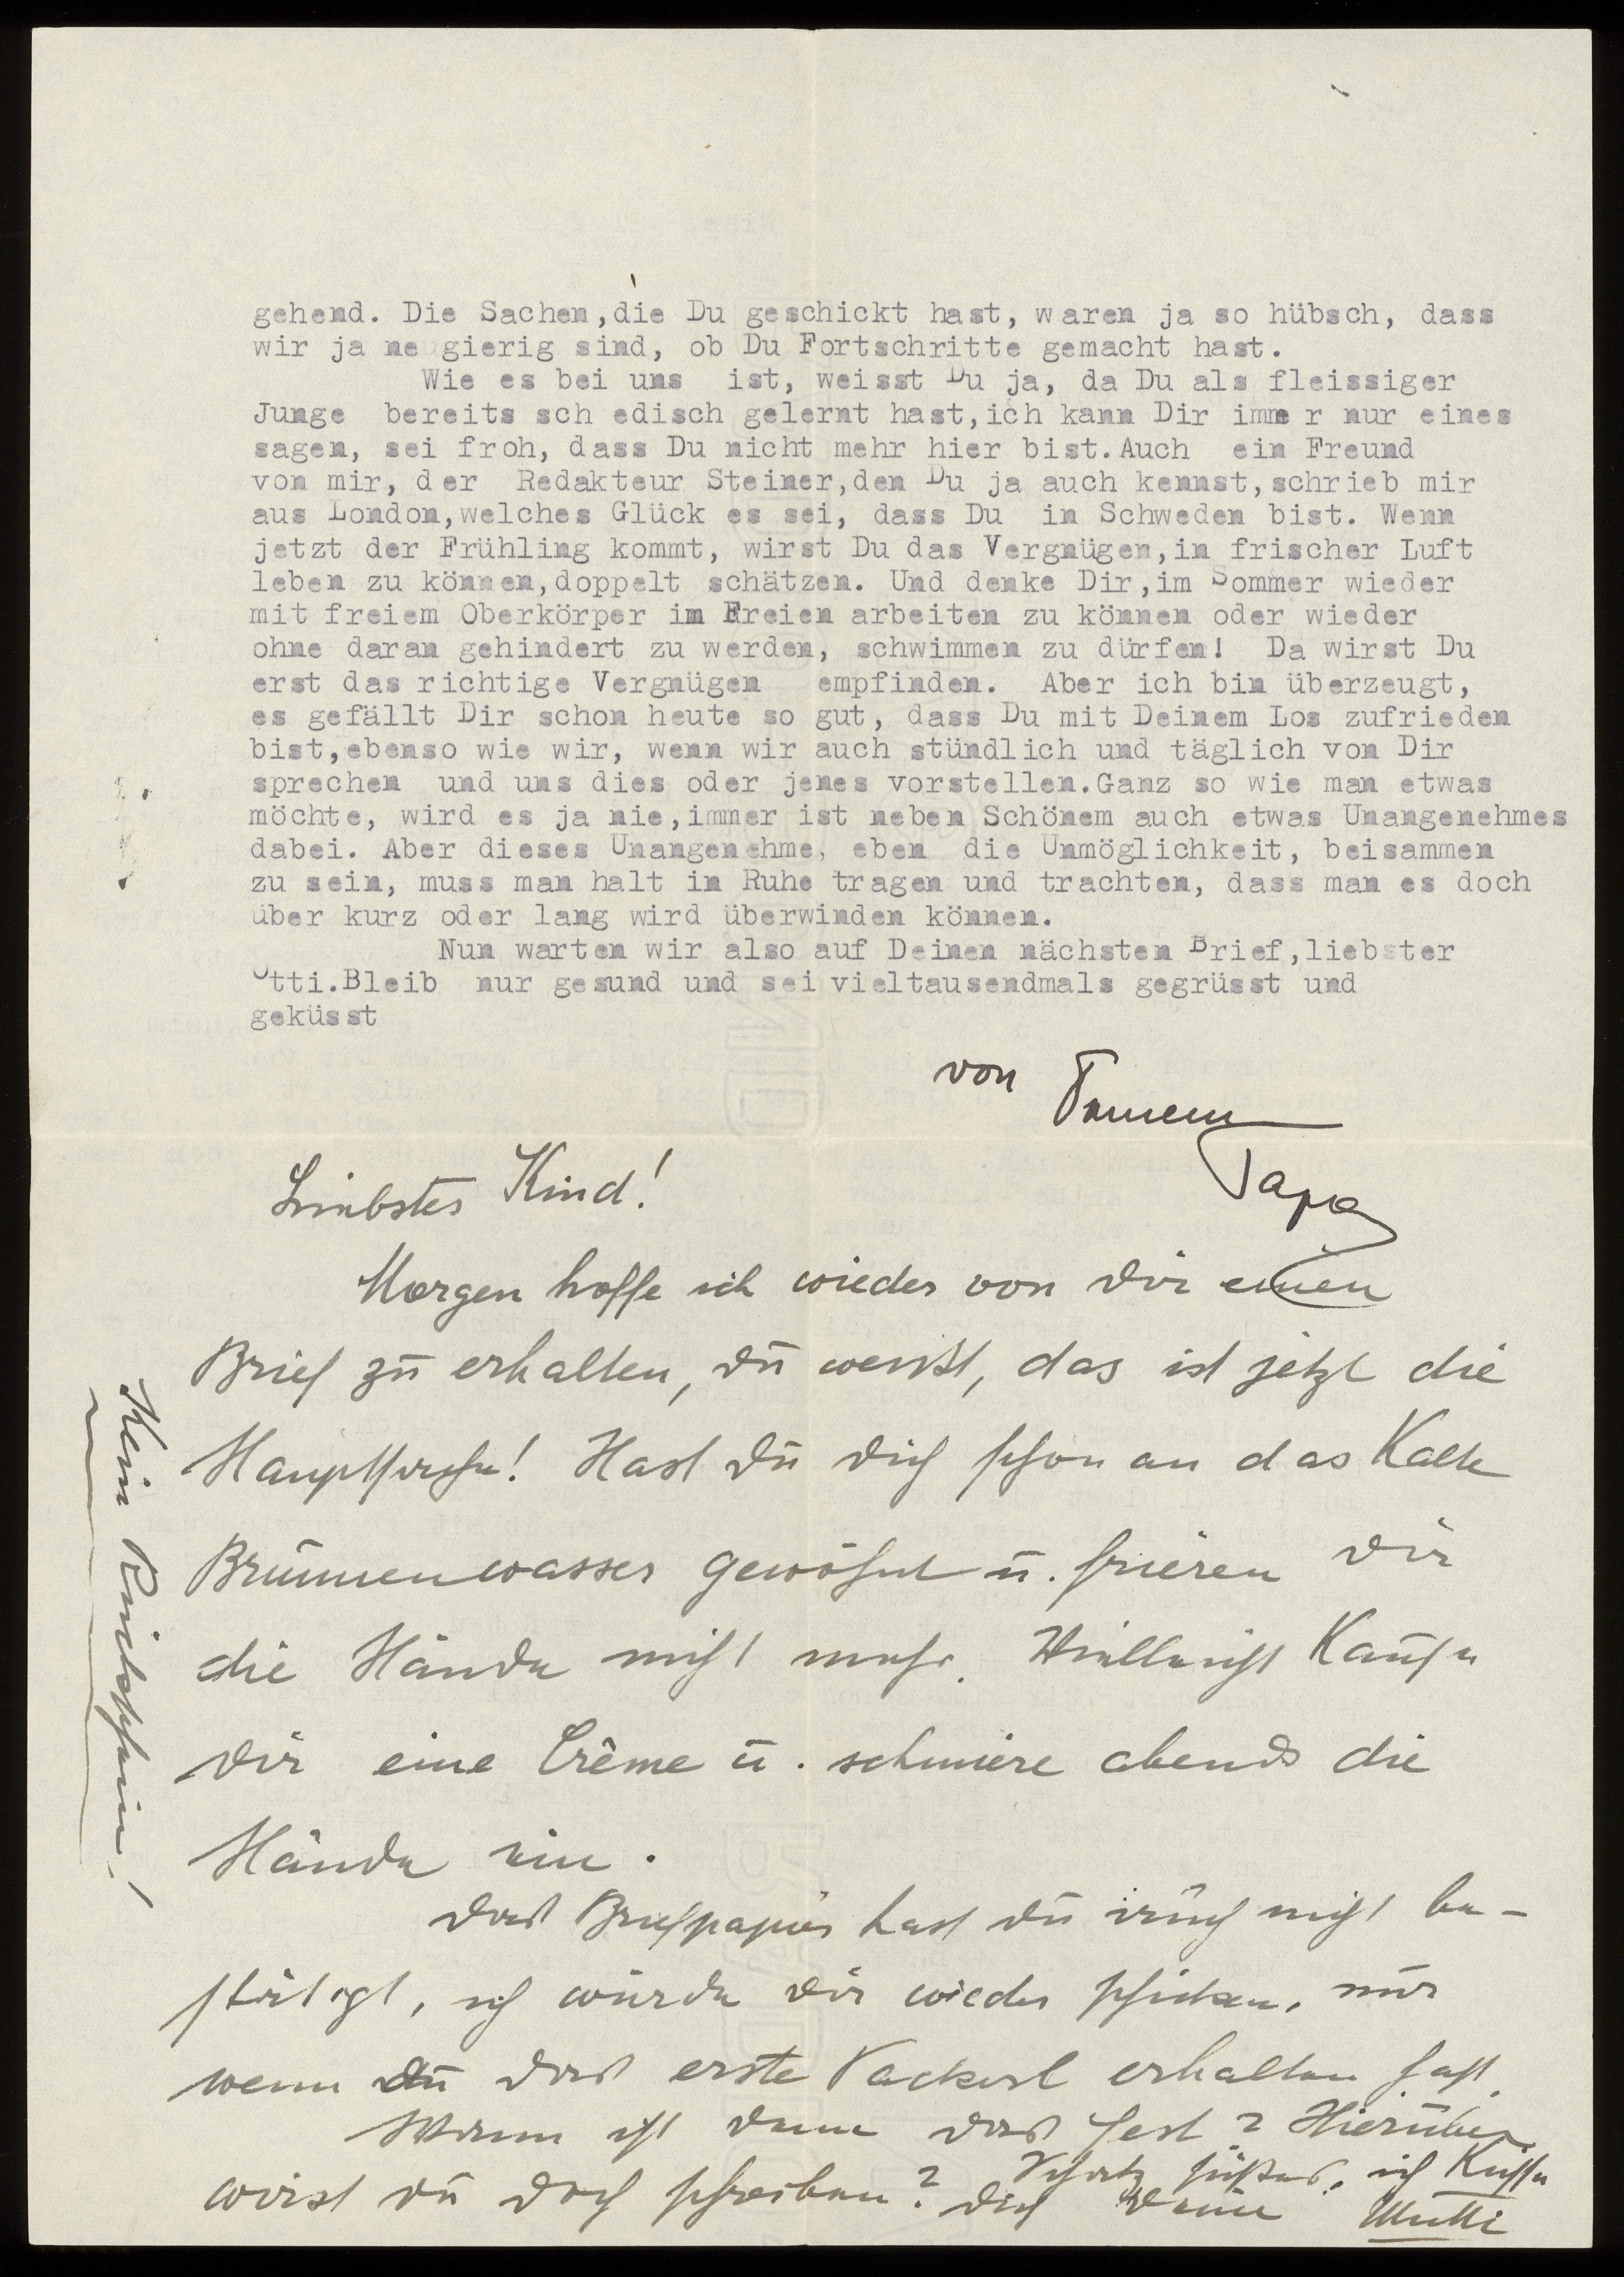 gehend. Die Sachen,die Du geschickt hast, waren ja so hübsch, dass
wir ja ne gierig sind, ob Du Fortschritte gemacht hast.
Wie es bei uns ist, weisst Du ja, da Du als fleissiger
Junge bereits sch edisch gelernt hast,ich kann Dir imme r nur eines
sagen, sei froh, dass Du nicht mehr hier bist.Auch ein Freund
von mir, der Redakteur Steiner,den Du ja auch kennst,schrieb mir
aus London,welches Glück es sei, dass Du in Schweden bist. Wenn
jetzt der Frühling kommt, wirst Du das Vergnügen,in frischer Luft
leben zu können,doppelt schätzen. Und denke Dir,im Sommer wieder
mit freiem Oberkörper im Freien arbeiten zu können oder wieder
ohne daran gehindert zu werden, schwimmen zu dürfen! Da wirst Du
erst das richtige Vergnügen empfinden. Aber ich bin überzeugt,
es gefällt Dir schon heute so gut, dass Du mit Deinem Los zufrieden
bist,ebenso wie wir, wenn wir auch stündlich und täglich von Dir
sprechen und uns dies oder jenes vorstellen.Ganz so wie man etwas
möchte, wird es ja nie,immer ist neben Schönem auch etwas Unangenehmes
dabei. Aber dieses Unangenehme, eben die Unmöglichkeit, beisammen
zu sein, muss man halt in Ruhe tragen und trachten, dass man es doch
über kurz oder lang wird überwinden können.
Nun warten wir also auf Deinen nächsten Brief,liebster
Otti.Bleib nur gesund und sei vieltausendmals gegrüsst und
geküsst
von Deinem
Papa
Liebstes Kind!
Morgen hoffe ich wieder von Dir einen
Brief zu erhalten, Du weißt, das ist jetzt die
Hauptsache! Hast Du Dich schon an das Kalte
Brunnenwasser gewöhnt u. frieren Dir
die Hände nicht mehr. Vielleicht Kaufe
Dir eine Crême u. schmiere abends die
Hände ein.
Das Briefpapier hast Du auch nicht be-
stätigt, ich würde Dir wieder schicken, nur
wenn Du das erste Packerl erhalten hast.
Wann ist denn das Fest? Hierüber
wirst Du doch schreiben? Schatz süßes, ich Küsse
Dich Deine Mutti
Kein Rückschein!